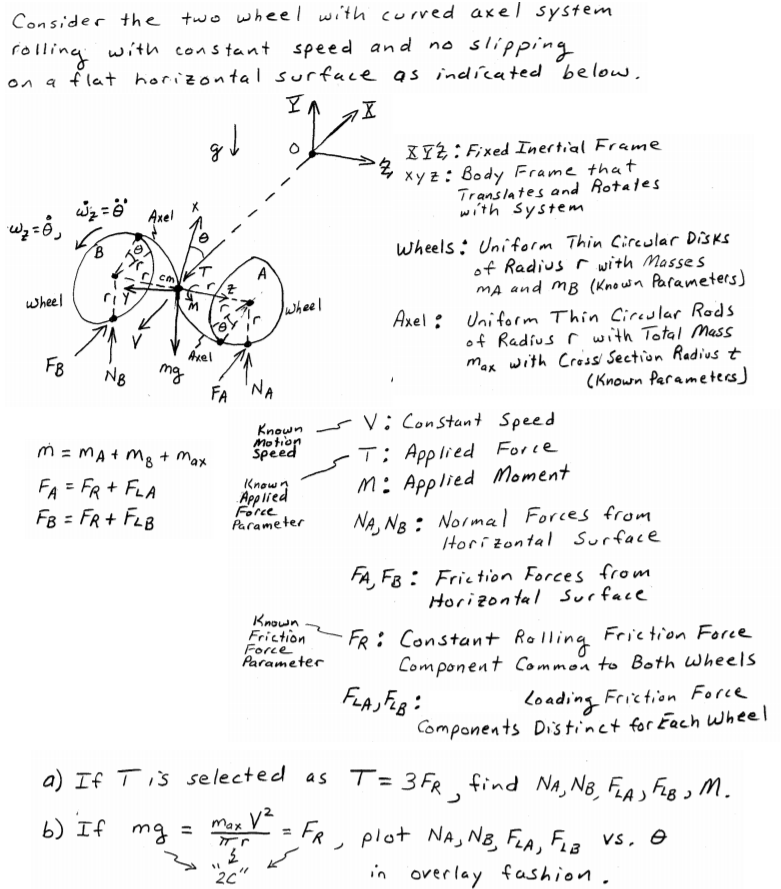 Consider the two wheel with curved axel system
rolling with constant speed and no slipping
on a flat horizontal surface as indicated below.
Y
X
g
O
Z
XYZ : Fixed Inertial Frame
xyz : Body Frame that
Translates and Rotates
with System
ωz = θ̇, ω̇z = θ̈
Axel
x
θ
B
θ
r
r
cm
T
r
A
z
M
r
θ
r
r
r
y
wheel
wheel
V
Axel
FB
NB
mg
FA
NA
Wheels : Uniform Thin Circular Disks
of Radius r with Masses
mA and mB (Known Parameters)
Axel : Uniform Thin Circular Rods
of Radius r with Total Mass
max with Cross Section Radius t
(Known Parameters)
m = mA + mB + max
FA = FR + FLA
FB = FR + FLB
Known
Motion
Speed
V : Constant Speed
Known
Applied
Force
Parameter
T : Applied Force
M : Applied Moment
NA, NB : Normal Forces from
Horizontal Surface
FA, FB : Friction Forces from
Horizontal Surface
Known
Friction
Force
Parameter
FR : Constant Rolling Friction Force
Component Common to Both Wheels
FLA, FLB : Loading Friction Force
Components Distinct for Each Wheel
a) If T is selected as T = 3FR, find NA, NB, FLA, FLB, M.
b) If mg = max V² / πr = FR, plot NA, NB, FLA, FLB vs. θ
"2C"
in overlay fashion.